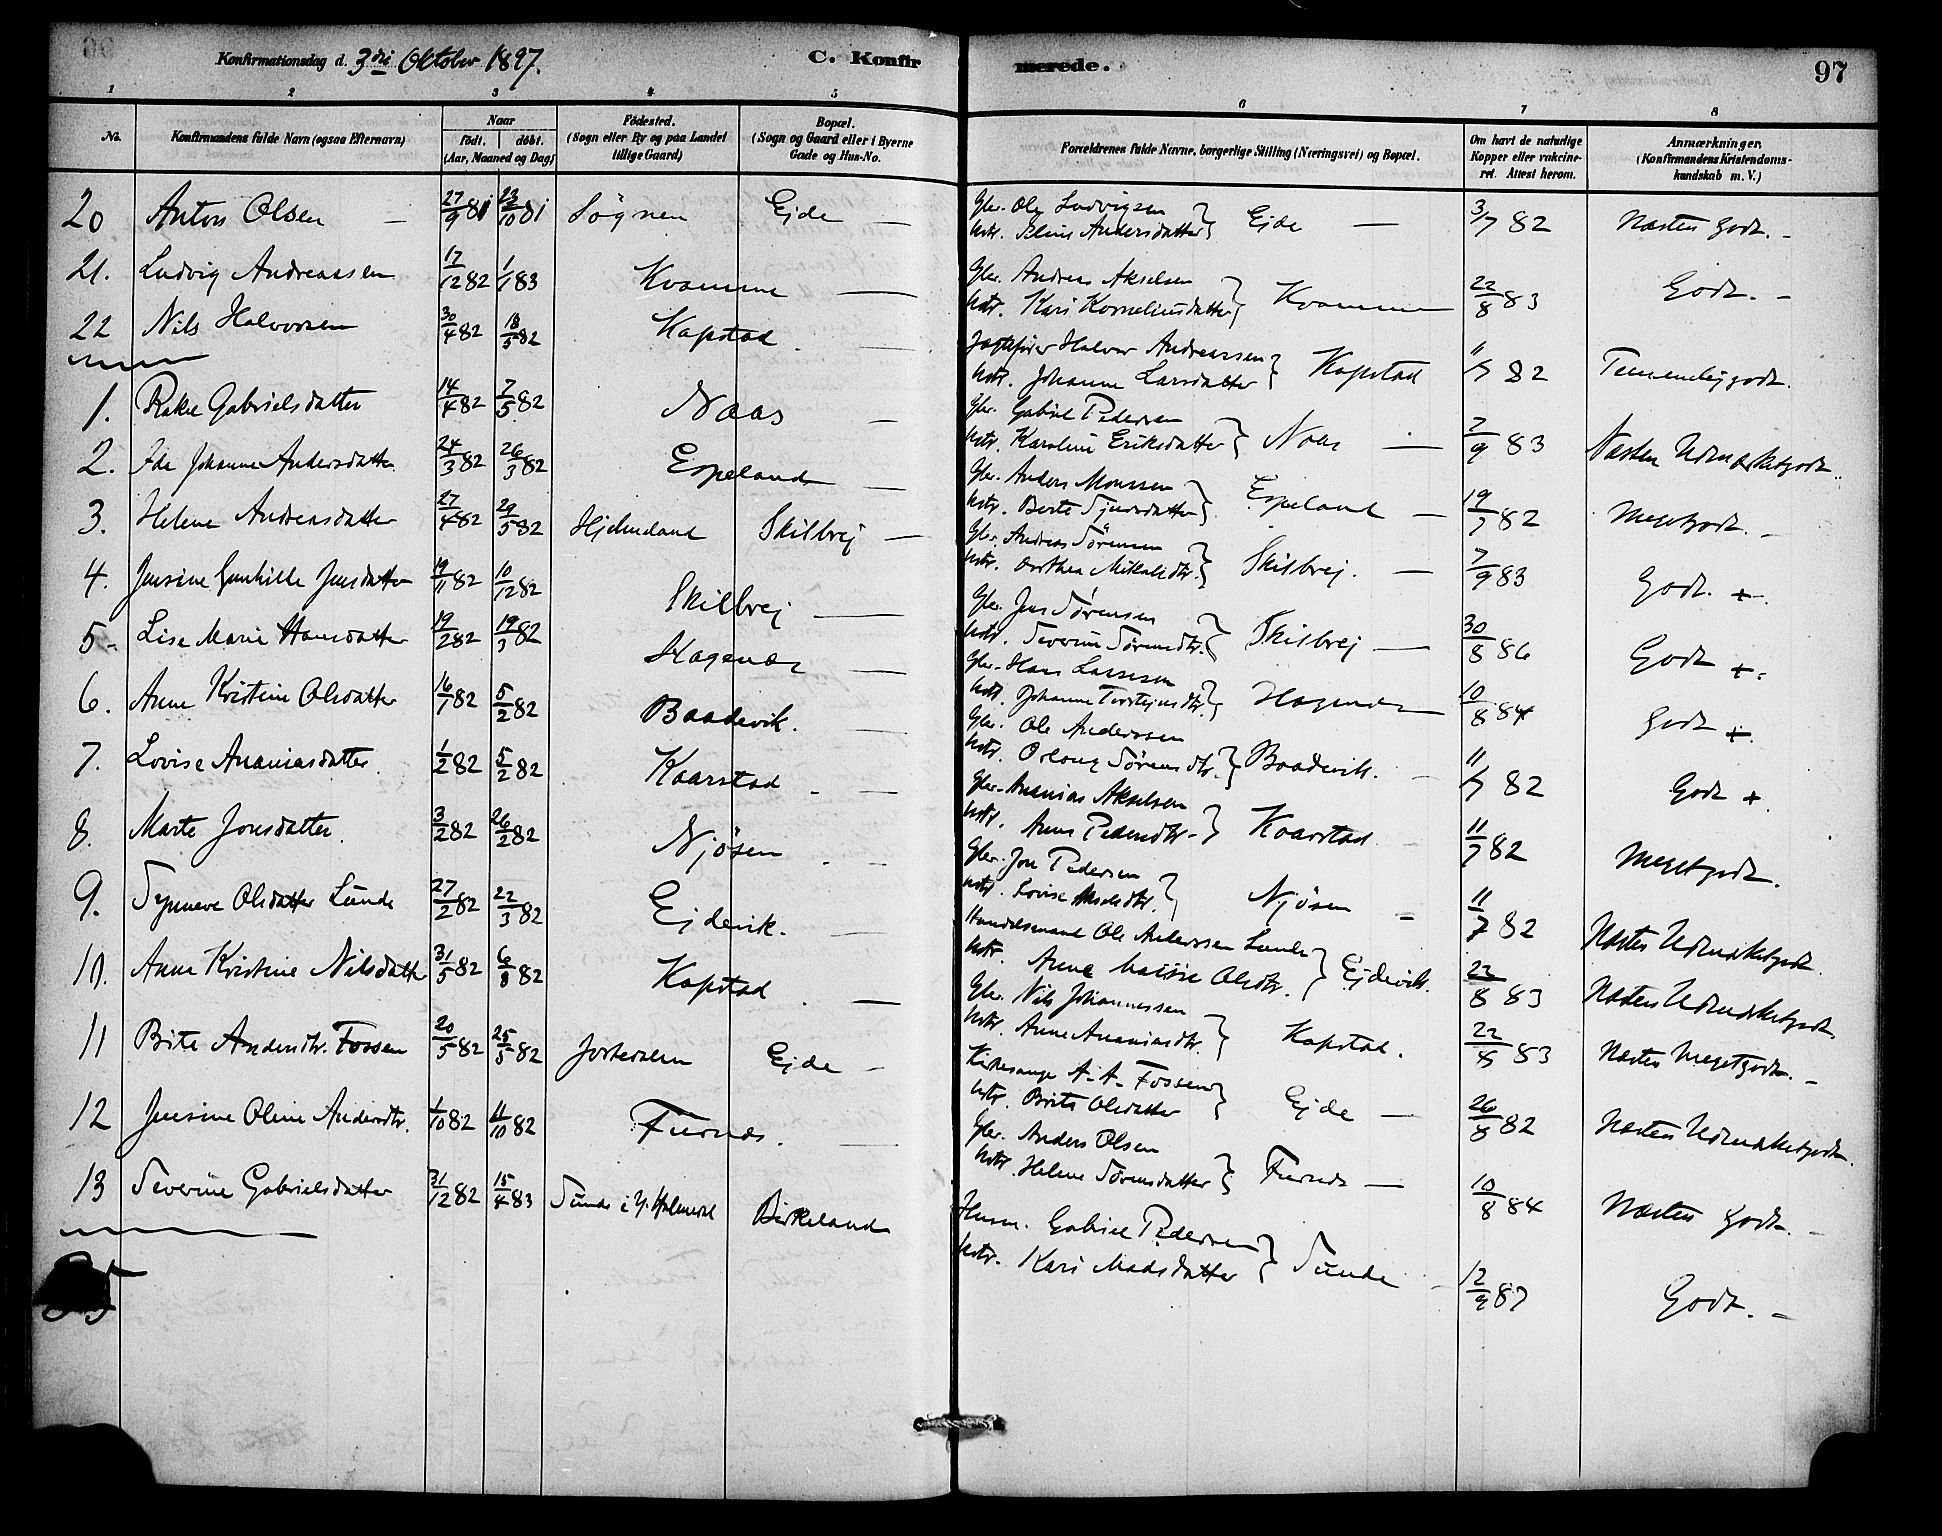 Konfirmationsdag d. 3die Oktober 1897. C. Konfirmerede. 97
1 2 3 4 5 6 7 8
No. Konfirmandens fulde Navn (ogsaa Efternavn) Naar født. døbt. (Aar, Maaned og Dag) Fødested. (Sogn eller By og paa Landet tillige Gaard) Bopæl. (Sogn og Gaard eller i Byerne Gade og Hus-No. Forældrenes fulde Navne, borgerlige Stilling (Næringsvei) og Bopæl. Om havt de naturlige Kopper eller vakcineret. Attest herom. Anmærkninger. (Konfirmandens Kristendomskundskab m. V.)
20 Anton Olsen — 27/9 81 23/10 81 Søgnen Ejde — Gbr. Ole Ludvigsen Hstr. Andersdatter } Ejde — 3/7 82 Næsten godt. -
21. Ludvig Andreassen 17/12 82 1/1 83 Kvamme — Gbr. Andreas Akselsen Hstr. Kari Korneliusdatter } Kvamme 22/8 83 Godt. -
22 Nils Halvorsen 30/4 82 18/5 82 Kapstad. Jagtefører Halvor Andreassen Hstr. Johanne Larsdatter } Kapstad 11/7 82 Temmelig godt.
1. Rakel Gabrielsdatter 14/4 82 7/5 82 Naas — Gbr. Gabriel Pedersen Hstr. Karoline Eriksdatter } Naas — 7/9 83 Næsten Udmærketgodt.
2. Ida Johanne Andersdatter 24/3 82 26/3 82 Espeland — Gbr. Anders Monssen Hstr. Berte } Espeland — 19/7 82 Megetgodt. -
3. Helene Andreasdatter 27/4 82 29/5 82 Hjelmeland Skilbrej — Gbr. Andreas Sørensen Hstr. Dorthea Mikalsdtr. } Skilbrej. — 7/9 83 Godt. +.
4. Jensine Gunhilde Jensdatter 19/11 82 10/12 82 Skilbrej — Gbr. Jens Sørensen Hstr. Severine Sørensdtr. } Skilbrej — 30/8 86 Godt +.
5. Lise Marie Hansdatter 19/2 82 19/3 82 Hagenæs — Gbr. Hans Larssen Hstr. Johanne Torstejnsdtr. } Hagenæs — 10/8 84 Godt +.
6. Anne Kristine Olsdatter 16/1 82 5/2 82 Baadevik. — Gbr. Ole Anderssen Hstr. Oleanz Sørensdtr. } Baadevik. — 11/7 82 Godt +.
7. Lovise Ananiasdatter. 1/2 82 5/2 82 Kaarstad. — Gbr. Ananias Akselsen Hstr. Anne Pedersdtr. } Kaarstad. 11/7 82 Megetgodt.
8. Marte Jonsdatter. 3/2 82 26/2 82 Njøsen. — Gbr. Jon Pedersen Hstr. Lovise Akselsdtr. } Njøsen - 11/7 82 Næsten Udmærketgodt.
9. Synneve Olsdatter Lunde 27/2 82 22/3 82 Ejdevik. — Handelsmand Ole Anderssen Lunde Hstr. Anna Olsdtr. } Ejdevik. 22/8 83 Næsten Udmærketgodt.
10. Anne Kristine Nilsdatter 31/5 82 6/8 82 Kapstad. — Gbr. Nils Johannessen Hstr. Anne Ananiasdtr. } Kapstad. 22/8 83 Næsten Megetgodt. -
11 Brite Andersdtr. Fossen 20/5 82 25/5 82 Jostedalen Ejde - Kirkesanger A. A. Fossen Hstr. Brite Olsdatter } Ejde — 26/8 82 Næsten Udmærketgodt.
12 Jensine Oline Andersdtr. 1/10 82 11/10 82 Furnæs. — Gbr. Anders Olsen Hstr. Helene Sørensdatter } Furnæs — 10/8 84 Næsten godt. -
13 Severine Gabrielsdatter 31/12 82 15/4 83 Sunde i Y. Holmedal Birkeland Husm. Gabriel Pedersen Hstr. Kari Madsdatter } Sunde - 12/9 87 Godt. -